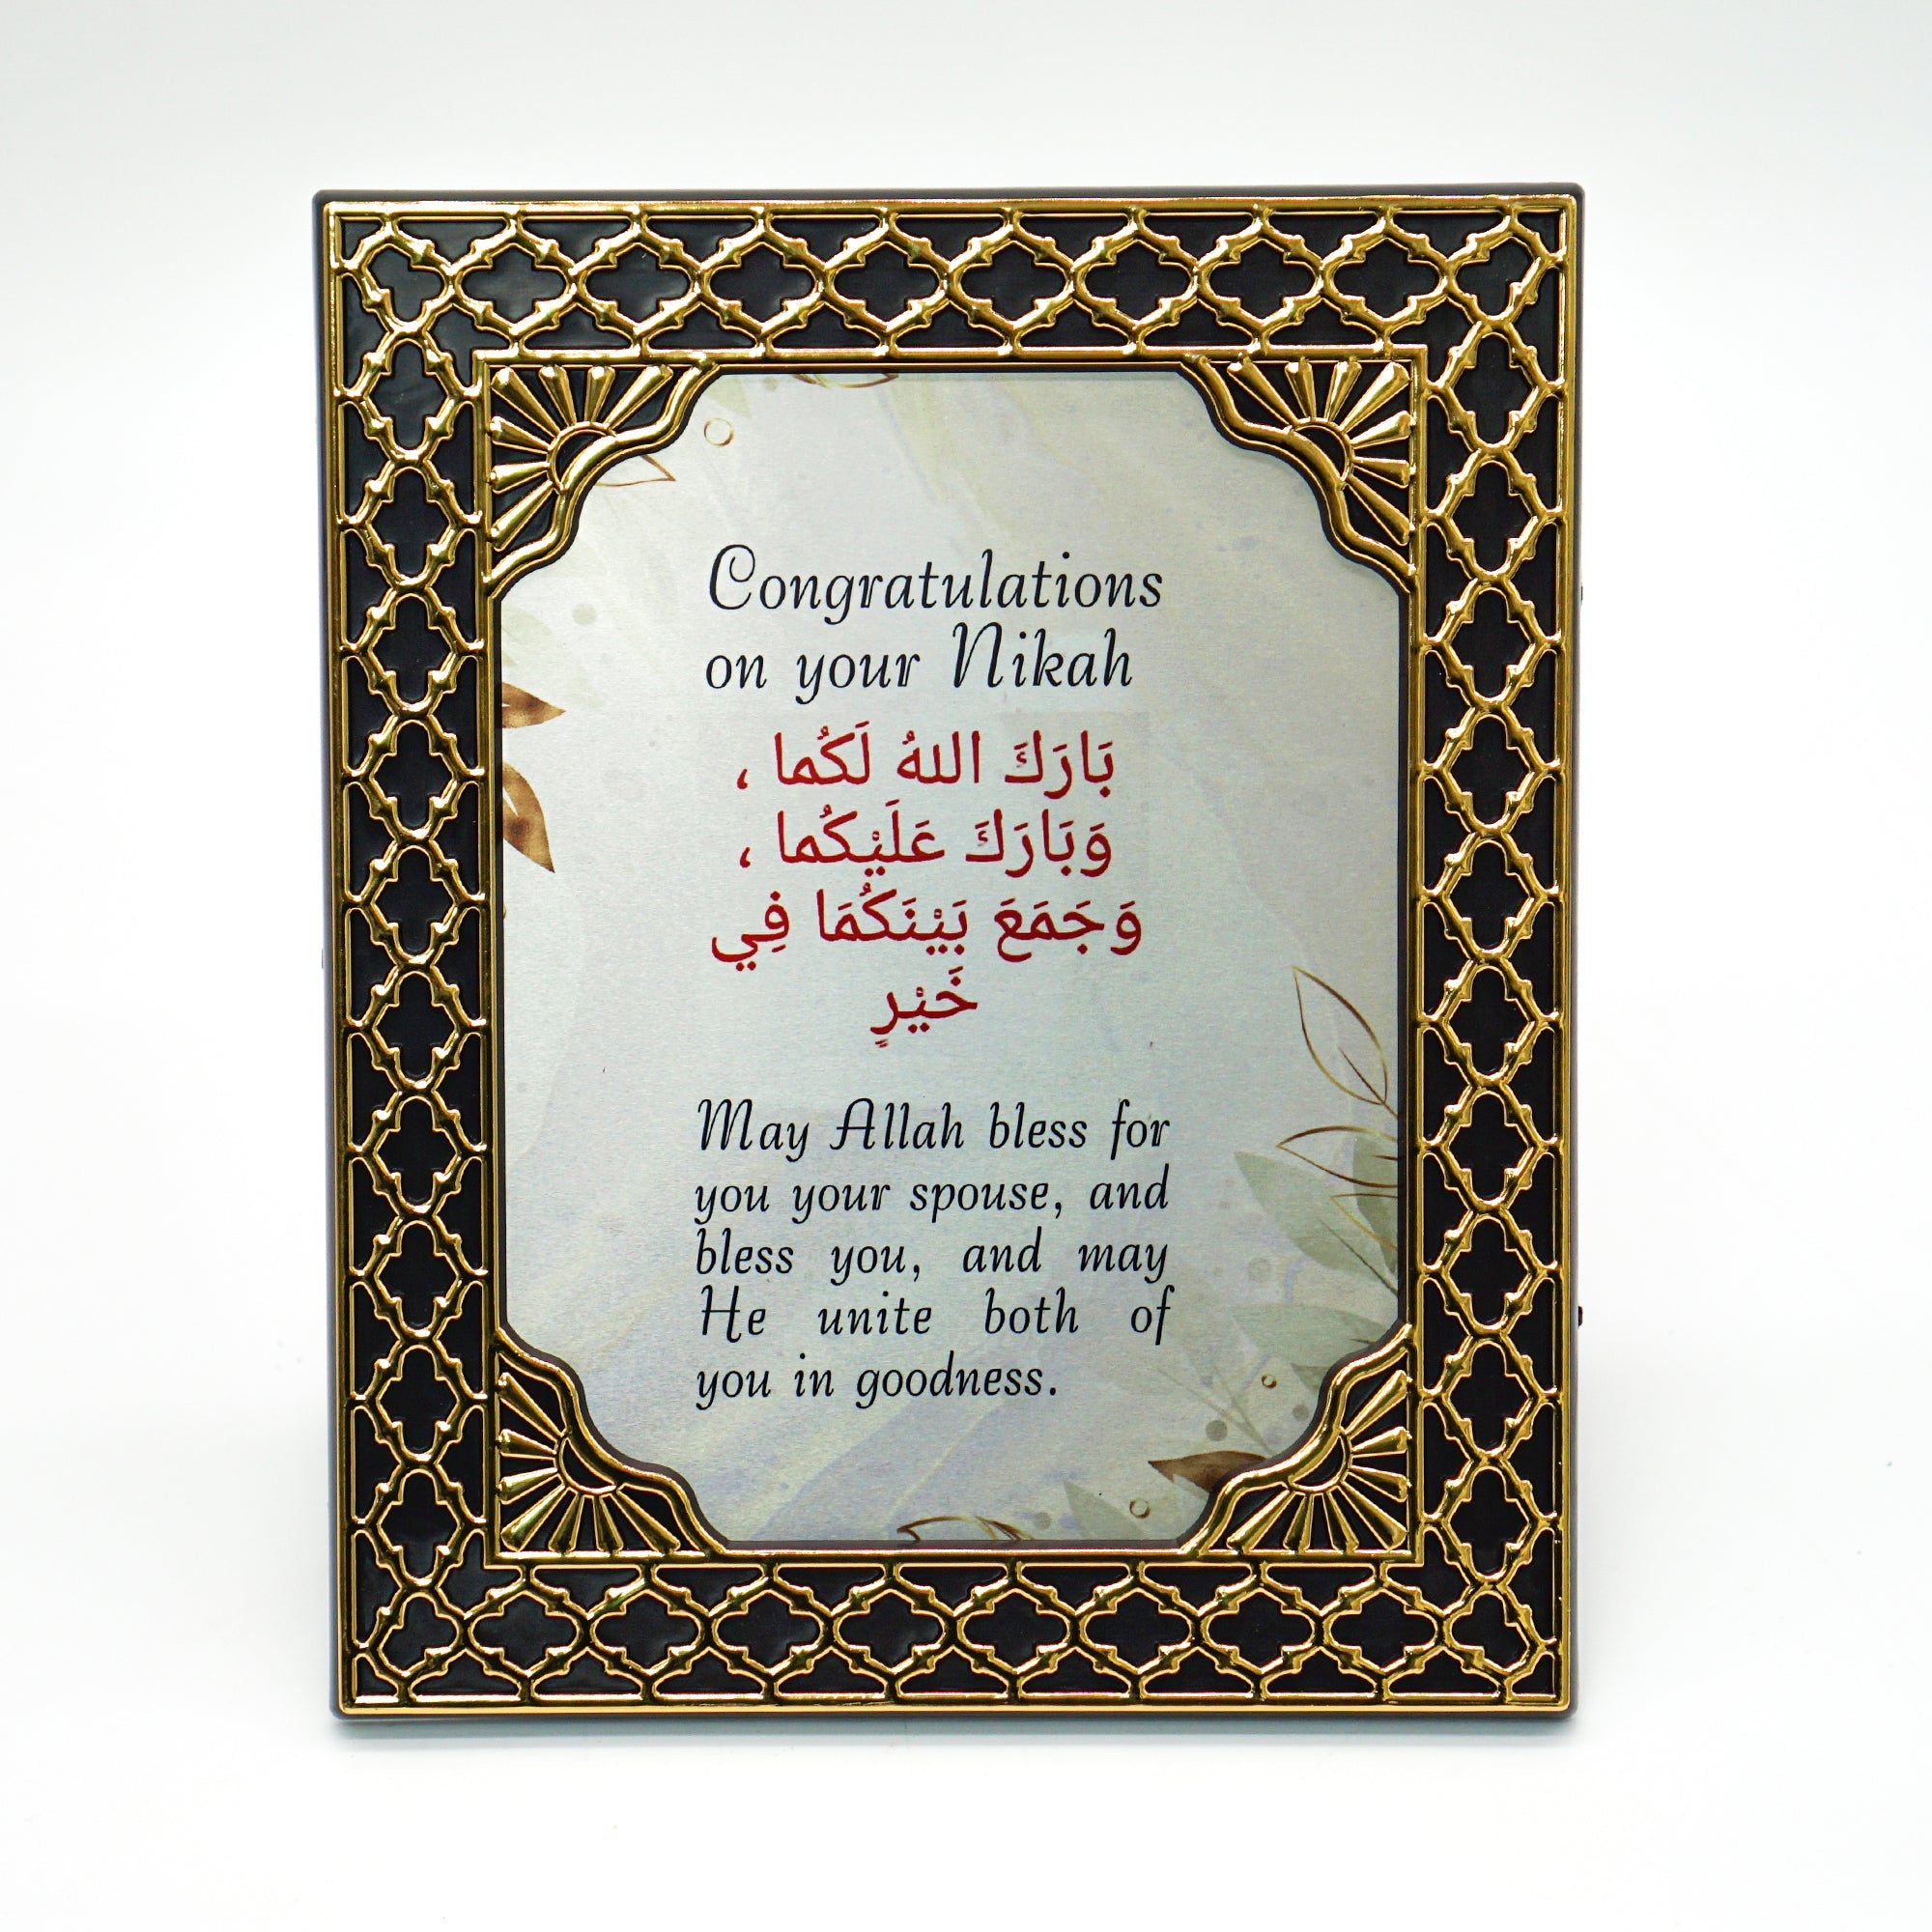 Congratulations
on your Nikah
بَارَكَ اللهُ لَكُما ،
وَبَارَكَ عَلَيْكُما ،
وَجَمَعَ بَيْنَكُمَا فِي
خَيْرٍ
May Allah bless for
you your spouse, and
bless you, and may
He unite both of
you in goodness.